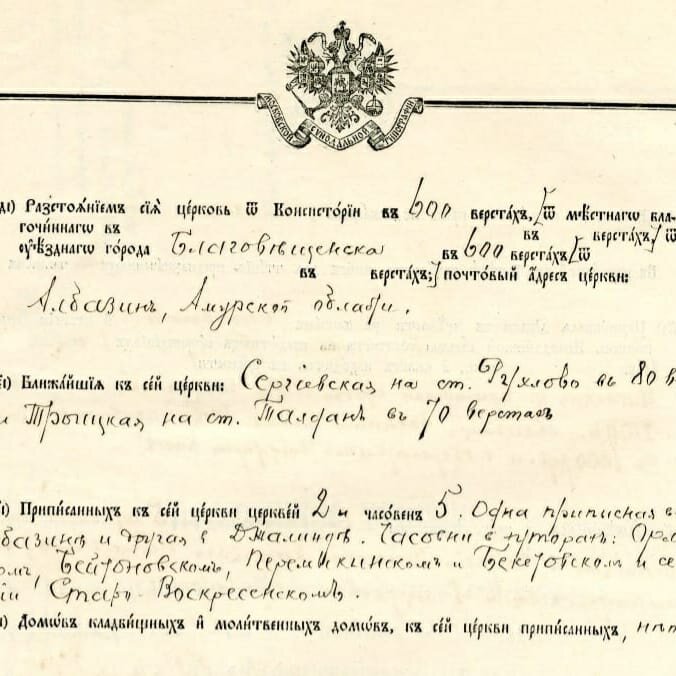 МОСКОВСКОЙ СѴНОДАЛЬНОЙ ТИПОГРАФІИ
аі) Разстоѧніемъ сіѧ цéрковь ѿ Консисторіи въ 600 верстáхъ, [ѿ мѣ́стнагѡ бла-
гочи́ннагѡ въ въ верстáхъ] ѿ
оуѣ́зднаго гóрода Благовѣщенска въ 600 верстáхъ [ѿ
въ верстáхъ;] почтóвый áдресъ цéркви:
Албазинъ, Амурской области.
ві) Ближáйшія къ сéй цéркви: Сергіевская на ст. Рухлово въ 80 в
и Троицкая на ст. Талданъ въ 70 верстахъ
гі) Припи́санныхъ къ сéй цéркви церквéй 2 и часóвенъ 5. Одна приписная в
базинѣ и другая в Джалиндѣ. Часовни в хуторахъ:
ком, Бейтоновском, Перемыкинском и Бекетовском и се
ніи Старо-Воскресенскомъ.
ді) Домѡ́въ кладби́щныхъ и моли́твенныхъ домѡ́въ, къ сéй цéркви припи́санныхъ, нѣт